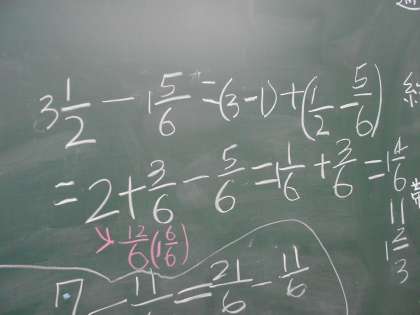 3 1/2 - 1 5/6 = (3-1) + (1/2 - 5/6)
= 2 + 3/6 - 5/6 = 1 1/6 + 3/6 = 1 4/6
12/6 (1 6/6)
11
1 2/3
= 21/6 - 11/6